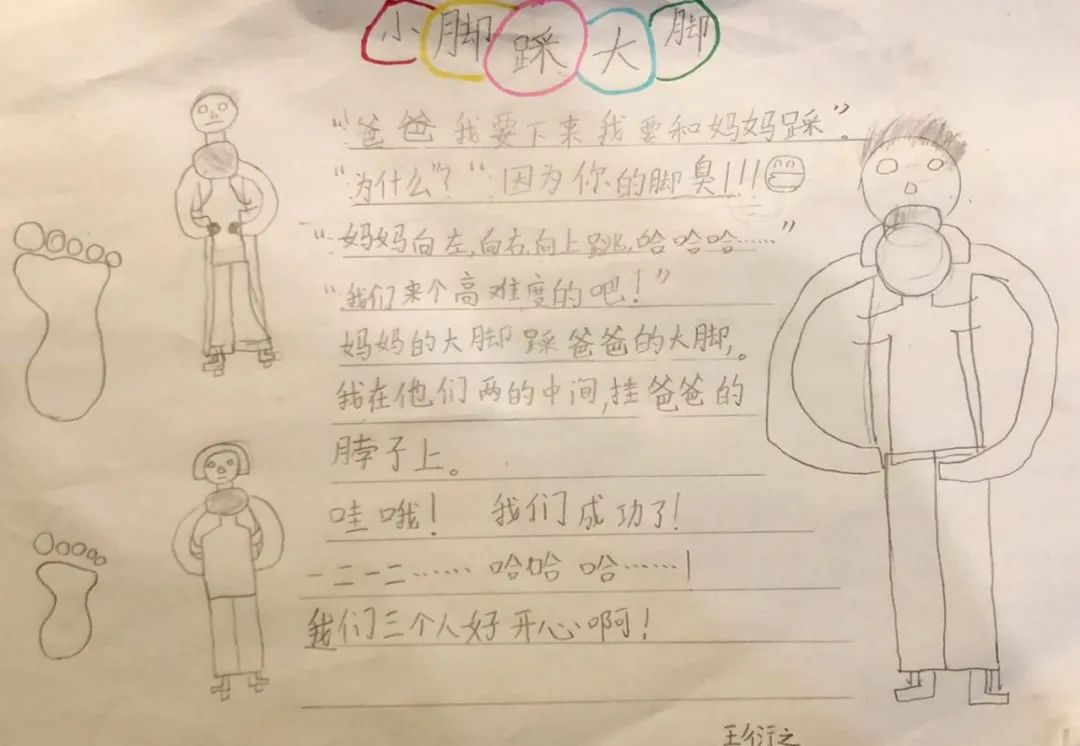 小脚踩大脚
“爸爸我要下来我要和妈妈踩”。
“为什么”？“因为你的脚臭!!!
“妈妈向左,向右,向上跳,哈哈哈……”
“我们来个高难度的吧！”
妈妈的大脚踩爸爸的大脚,。
我在他们两的中间,挂爸爸的
脖子上。
哇哦！ 我们成功了！
一二一二…… 哈哈哈……！
我们三个人好开心啊！
王衍之